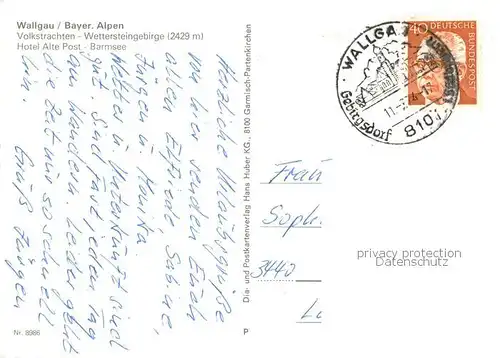 Wallgau / Bayer. Alpen
Volkstrachten - Wettersteingebirge (2429 m)
Hotel Alte Post - Barmsee
Herzliche Urlaubsgrüße
von hier senden Euch
allen Elfriede, Sabine,
Jürgen u. Monika.
Wetter u. Unterkunft sind
gut. Sind fast jeden Tag
am Wandern. Leider geht
die Zeit nur so schnell
hin.
Gruß Jürgen
Nr. 8986
Dia- und Postkartenverlag Hans Huber KG., 8100 Garmisch-Partenkirchen
P
WALLGAU
Gebirgsdorf
8101
40 DEUTSCHE
BUNDESPOST
Frau
Soph
3440
privacy protection
Datenschutz